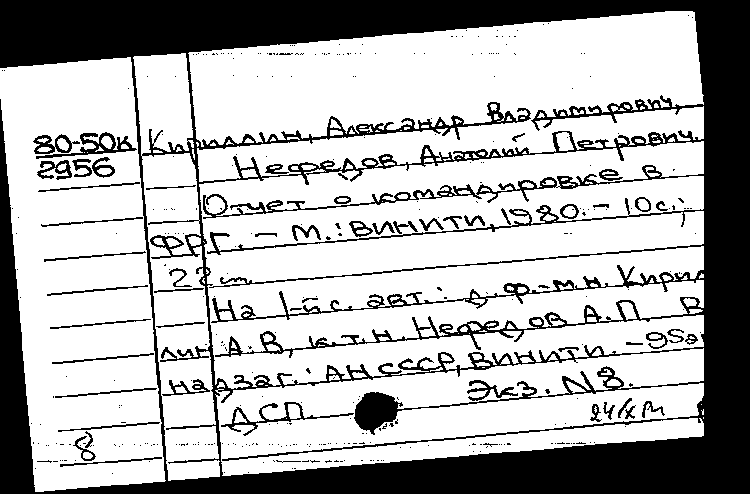 80-50к Кириллин, Александр Владимирович,
2956 Нефедов, Анатолий Петрович.
Отчет о командировке в
ФРГ. – М.: ВИНИТИ, 1980. – 10с.;
22 см.
На 1-й с. авт.: д.ф.-м.н. Кирил-
лин А.В, к.т.н. Нефедов А.П. В
надзаг.: АН СССР, ВИНИТИ. – 95эк
ДСП. Экз. N8.
8